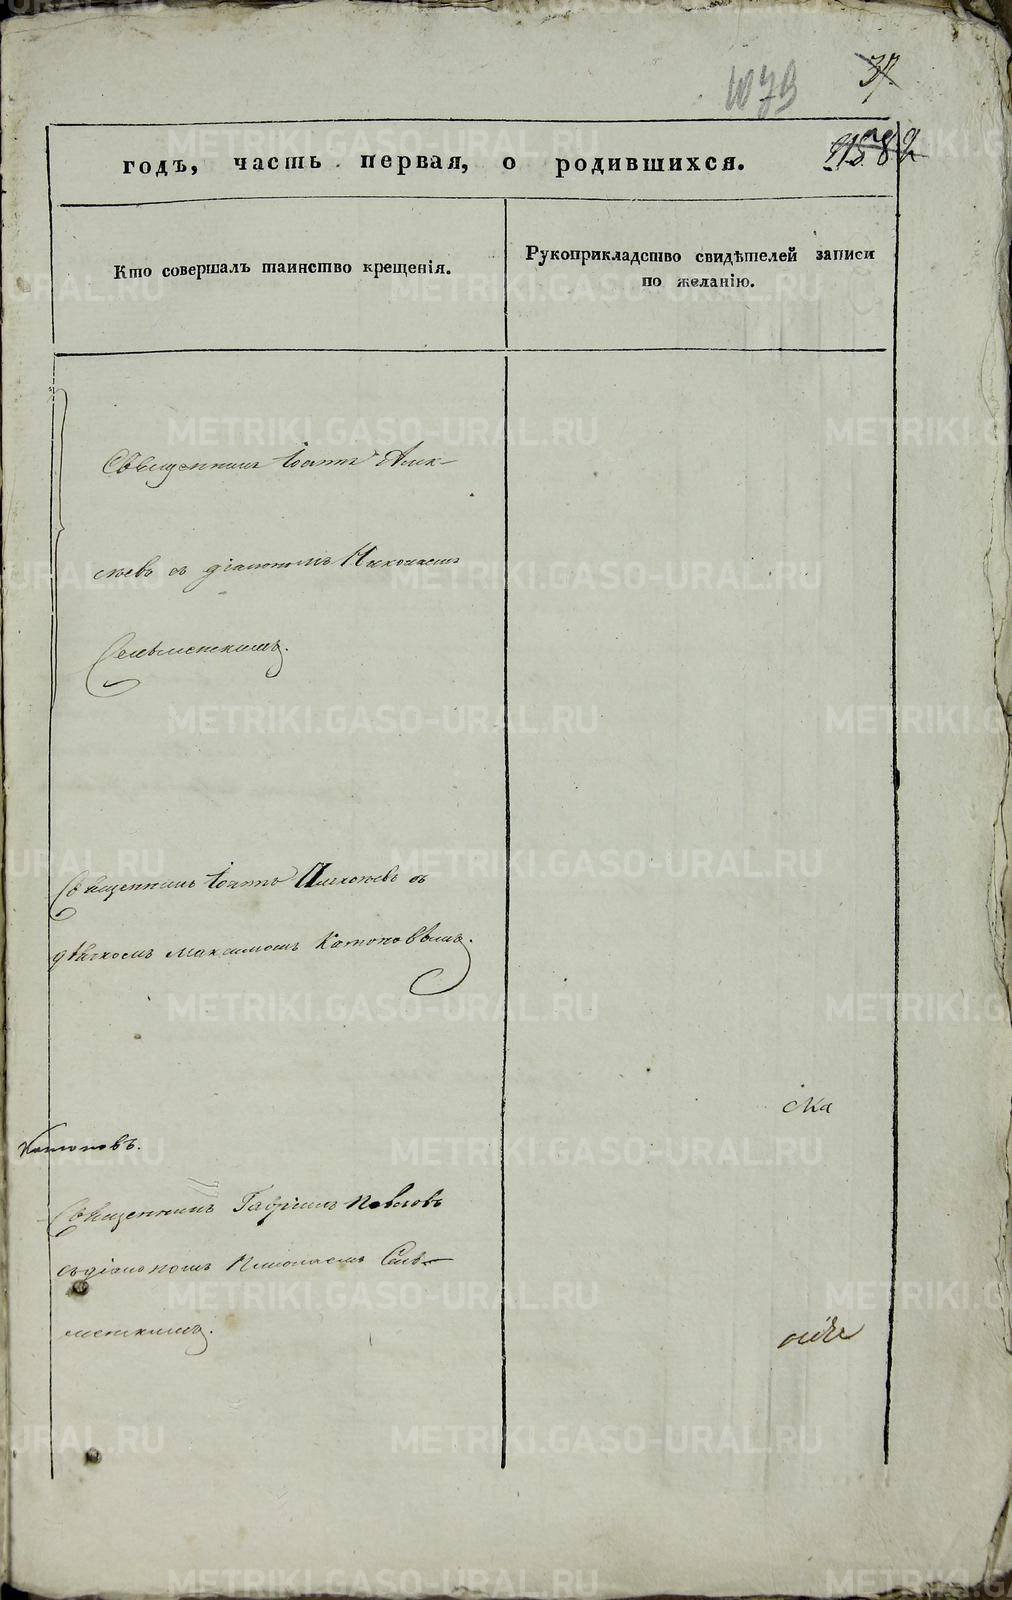 1079
37
годъ, часть первая, о родившихся.
Кто совершалъ таинство крещенія.
Рукоприкладство свидѣтелей записи
по желанію.
Священникъ Іоаннъ Алек-
сѣевъ съ діакономъ Николаемъ
Священникъ Іоаннъ Алексѣевъ съ
дьячкомъ Максимомъ Катоновымъ.
Катоновъ.
Священникъ Гавріилъ Павловъ
съ діакономъ Николаемъ
METRIKI.GASO-URAL.RU